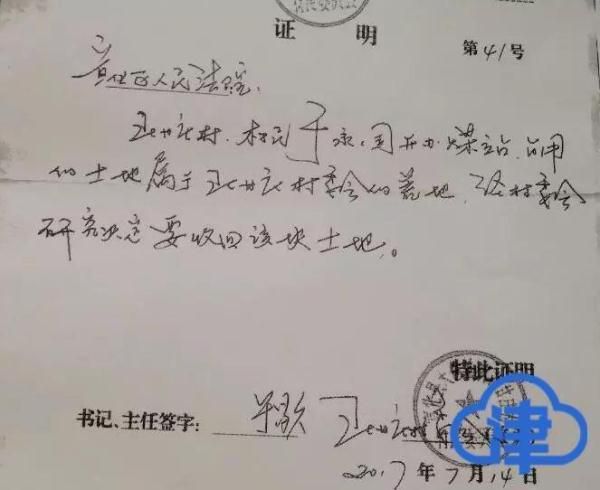 村民委员会
证 明
第41号
宣化区人民法院.
村.村民于永 开办煤站.占用
的土地属于 村委会的荒地,经村委会
研究决定要收回该块土地。
特此证明
书记、主任签字:
2017年7月14日
津